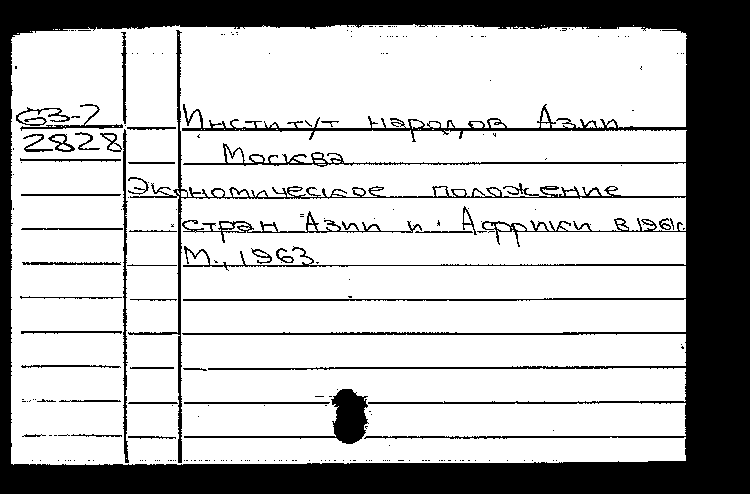 63-7 Институт народов Азии
2828 Москва
Экономическое положение
стран Азии и Африки в 1961г.
М., 1963.